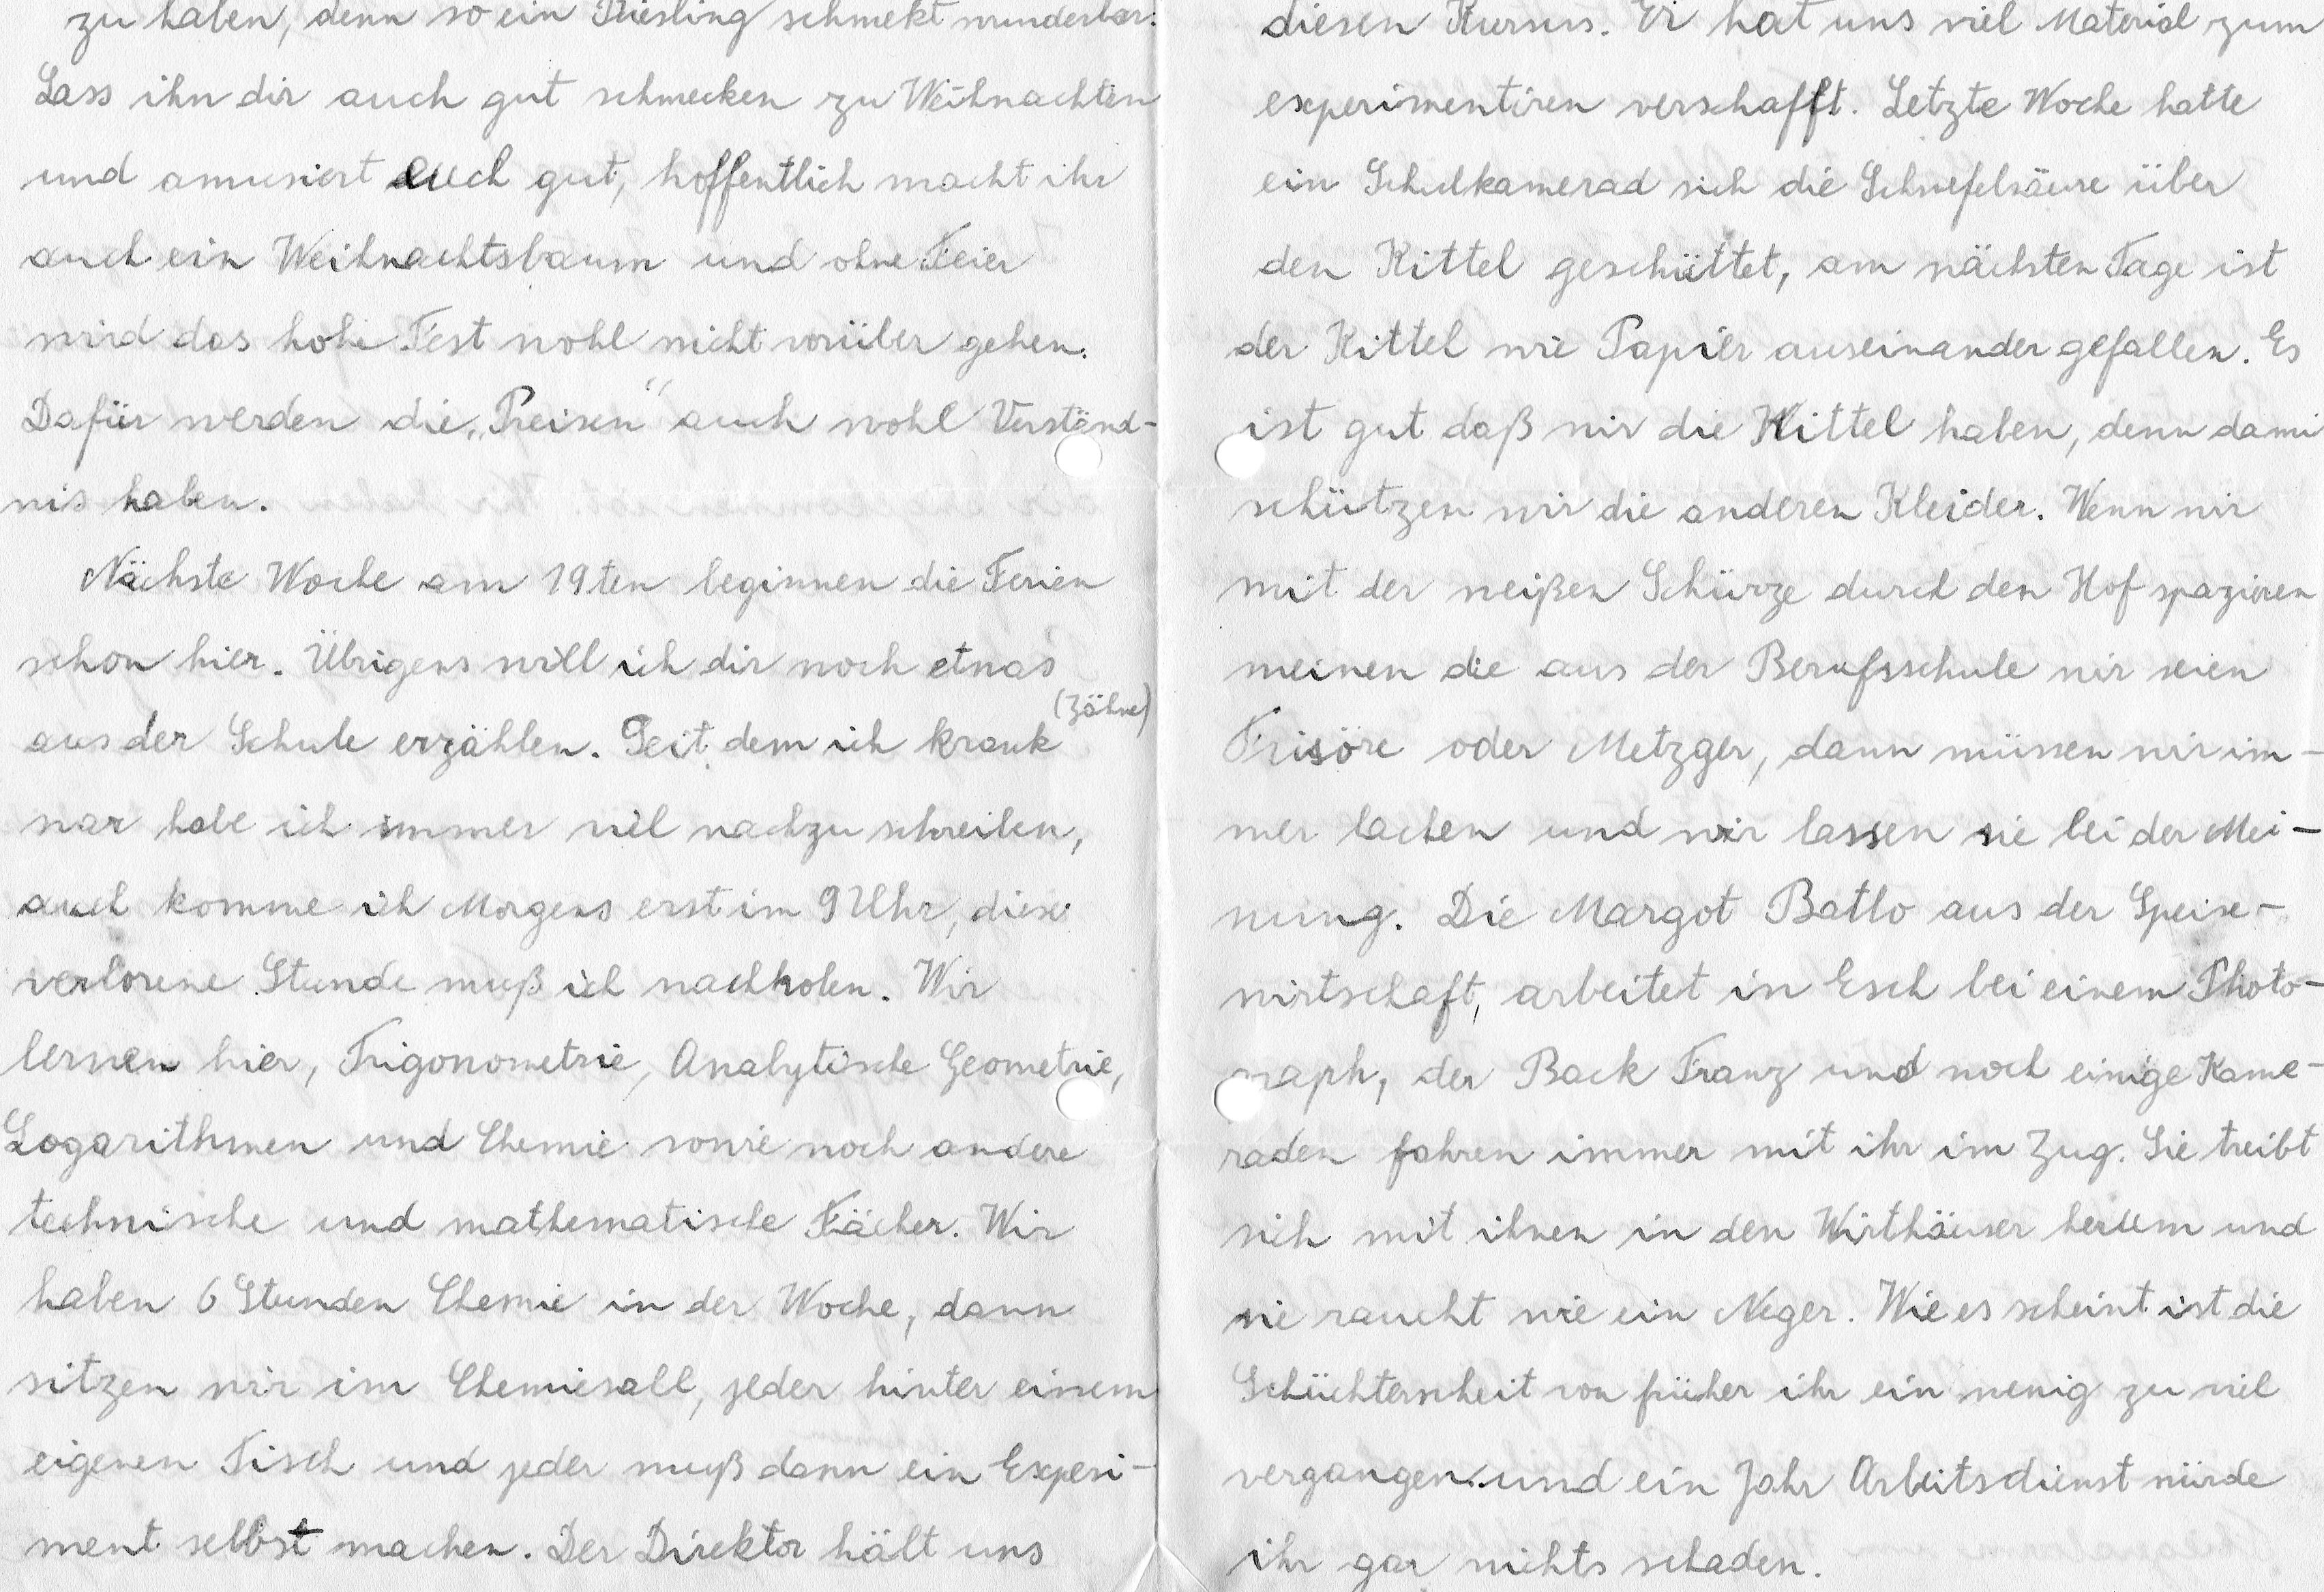 zu haben, denn so ein Riesling schmekt wunderbar.
Lass ihn dir auch gut schmecken zu Weihnachten
und amusiert euch gut, hoffentlich macht ihr
auch ein Weihnachtsbaum und ohne Feier
wird das hohe Fest wohl nicht vorüber gehen.
Dafür werden die „Preisen“ auch wohl Verständ-
nis haben.
Nächste Woche am 19ten beginnen die Ferien
schon hier. Übrigens will ich dir noch etwas
aus der Schule erzählen. Seit dem ich krank (Zähne)
war habe ich immer viel nachzuschreiben,
auch komme ich Morgens erst im 9 Uhr, diese
verlorene Stunde muß ich nachholen. Wir
lernen hier, Trigonometrie, Analytische Geometrie,
Logarithmen und Chemie sowie noch andere
technische und mathematische Fächer. Wir
haben 6 Stunden Chemie in der Woche, dann
sitzen wir im Chemiesall, jeder hinter einem
eigenen Tisch und jeder muß dann ein Experi-
ment selbst machen. Der Direktor hält uns
diesen Kursus. Er hat uns viel Material zum
experimentiren verschafft. Letzte Woche hatte
ein Schulkamerad sich die Schwefelsäure über
den Kittel geschüttet, am nächsten Tage ist
der Kittel wie Papier auseinander gefallen. Es
ist gut daß wir die Kittel haben, denn dami
schützen wir die anderen Kleider. Wenn wir
mit der weißen Schürze durch den Hof spazieren
meinen die aus der Berufsschule wir seien
Frisöre oder Metzger, dann müssen wir im-
mer lachen und wir lassen sie bei der Mei-
nung. Die Margot Batlo aus der Speise-
wirtschaft, arbeitet in Esch bei einem Photo-
graph, der Back Franz und noch einige Kame-
raden fahren immer mit ihr im Zug. Sie treibt
sich mit ihnen in den Wirthäuser herum und
sie raucht wie ein Neger. Wie es scheint ist die
Schüchternheit von früher ihr ein wenig zu viel
vergangen und ein Jahr Arbeitsdienst würde
ihr gar nichts schaden.